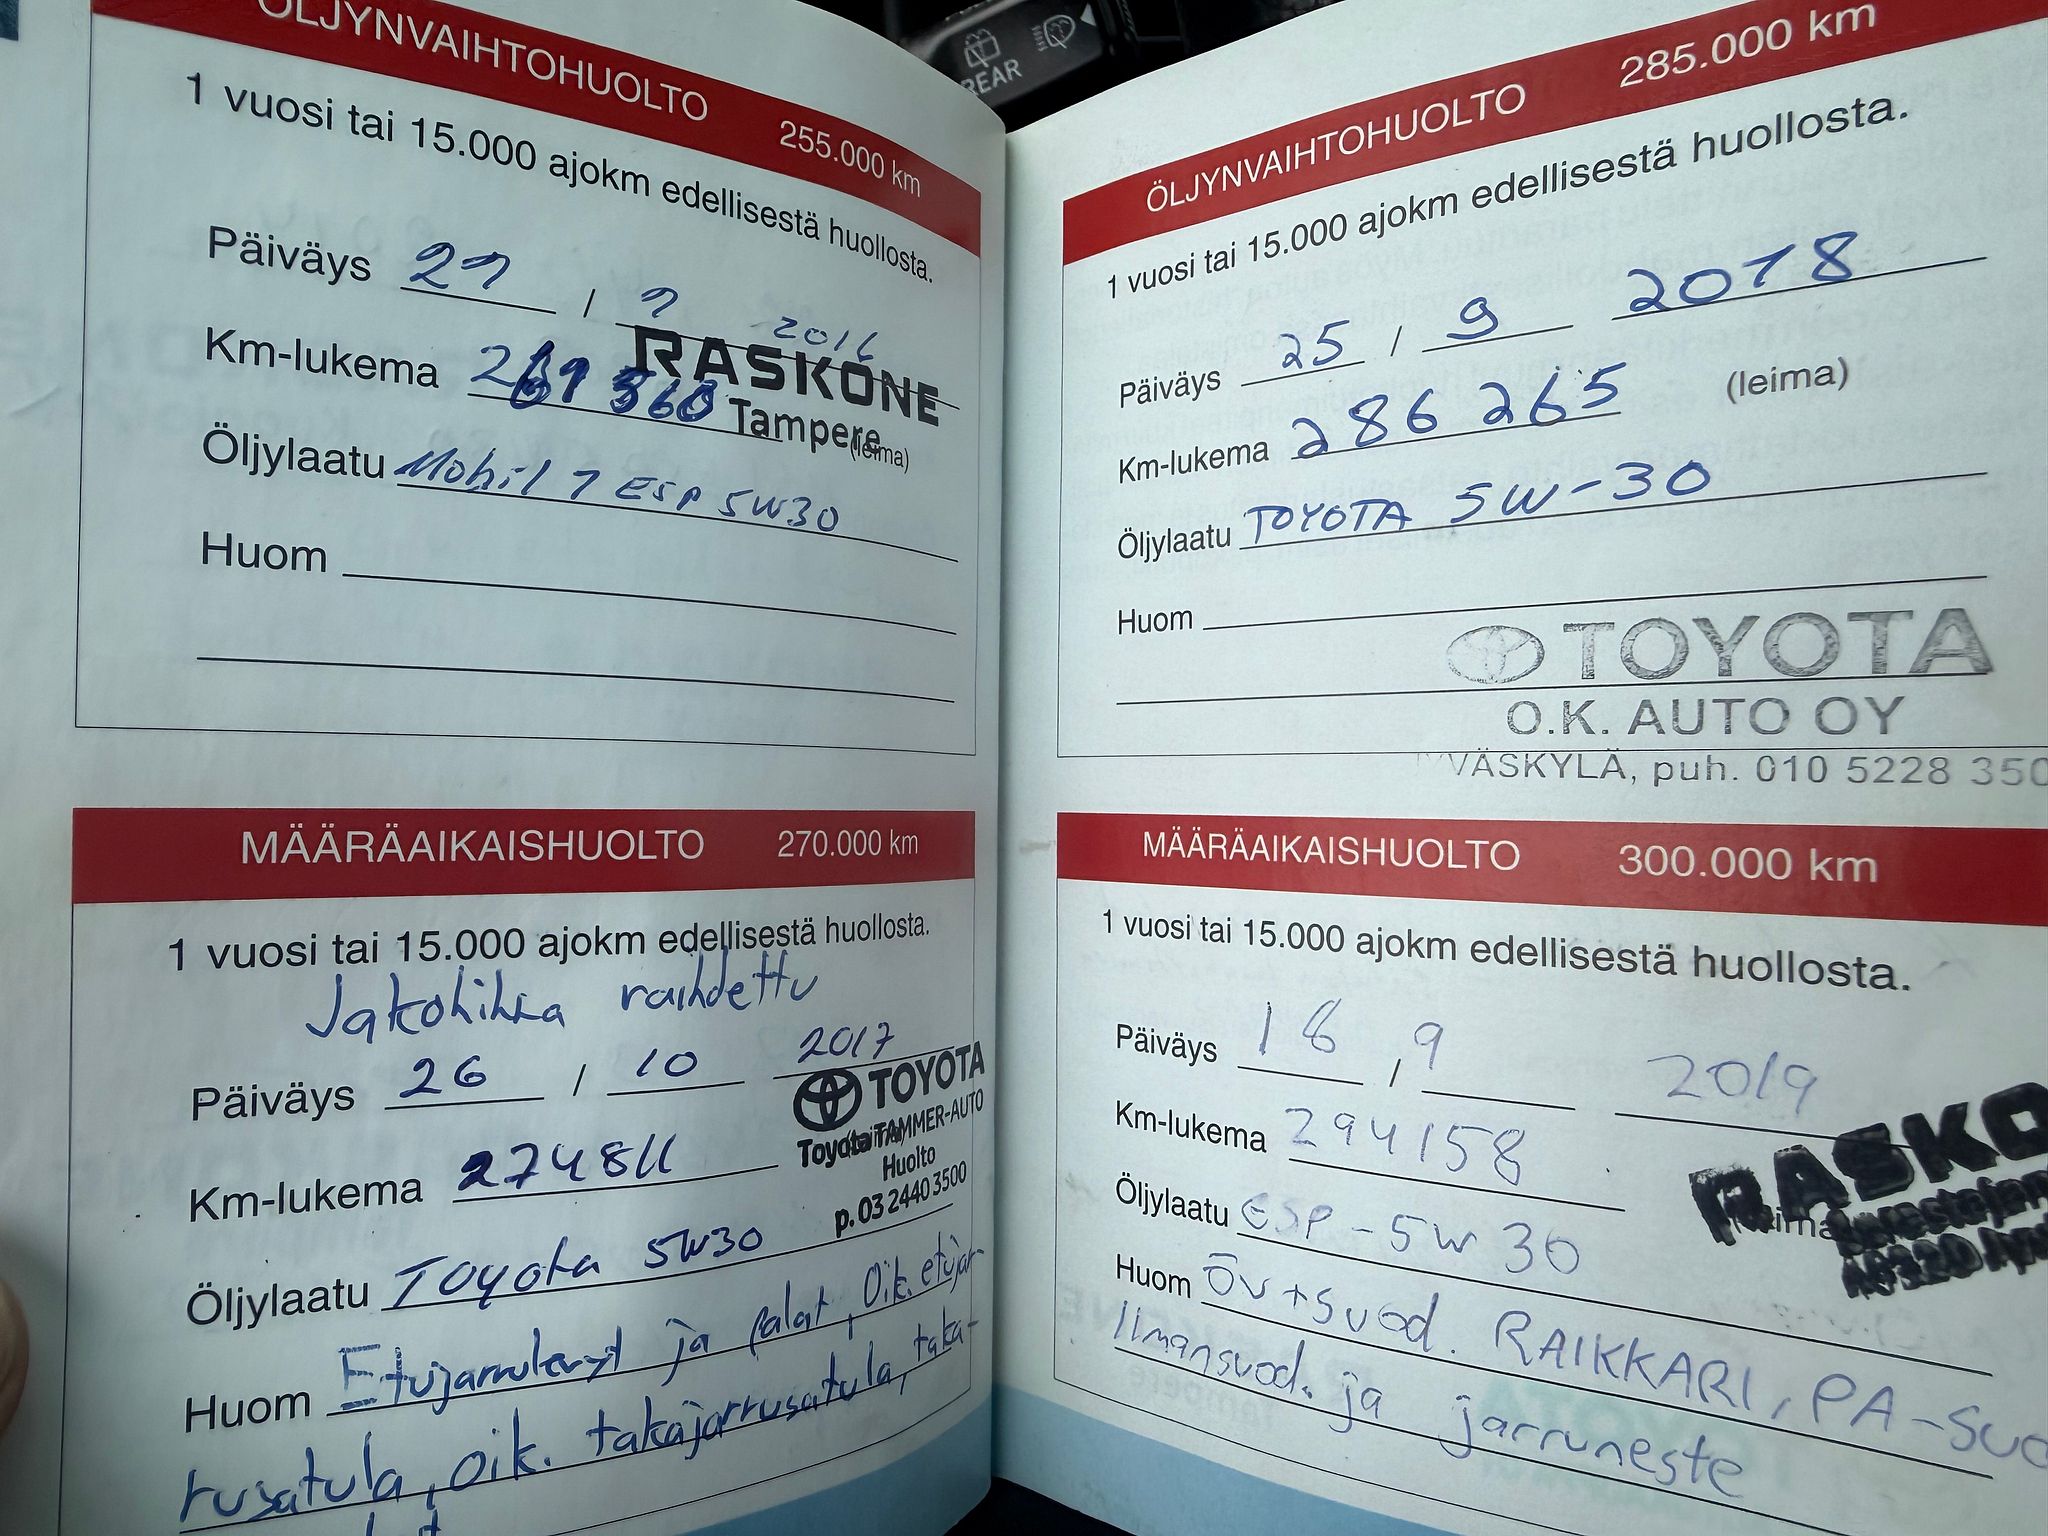 REAR
ÖLJYNVAIHTOHUOLTO 255.000 km
1 vuosi tai 15.000 ajokm edellisestä huollosta.
Päiväys 27 / 7 2016
RASKONE
Km-lukema
Tampere
(leima)
Öljylaatu Mobil 1 ESP 5W30
Huom
MÄÄRÄAIKAISHUOLTO 270.000 km
1 vuosi tai 15.000 ajokm edellisestä huollosta.
Jakohihna vaihdettu
Päiväys 26 / 10 2017
TOYOTA
Toyota TAMMER-AUTO
Huolto
p. 03 2440 3500
Km-lukema 274811
Öljylaatu Toyota 5W30
Huom Etujarrulevyt ja palat, Oik. etujar-
rusatula, oik. takajarrusatula, taka-
ÖLJYNVAIHTOHUOLTO 285.000 km
1 vuosi tai 15.000 ajokm edellisestä huollosta.
Päiväys 25 / 9 2018
Km-lukema 286 265 (leima)
Öljylaatu TOYOTA 5W-30
Huom
TOYOTA
O.K. AUTO OY
VÄSKYLÄ, puh. 010 5228 350
MÄÄRÄAIKAISHUOLTO 300.000 km
1 vuosi tai 15.000 ajokm edellisestä huollosta.
Päiväys 18 / 9 2019
Km-lukema 294158
RASKO
Öljylaatu ESP-5W 30
Huom ÖV+SUOD. RAIKKARI, PA-SUO
Ilmansuod. ja jarruneste